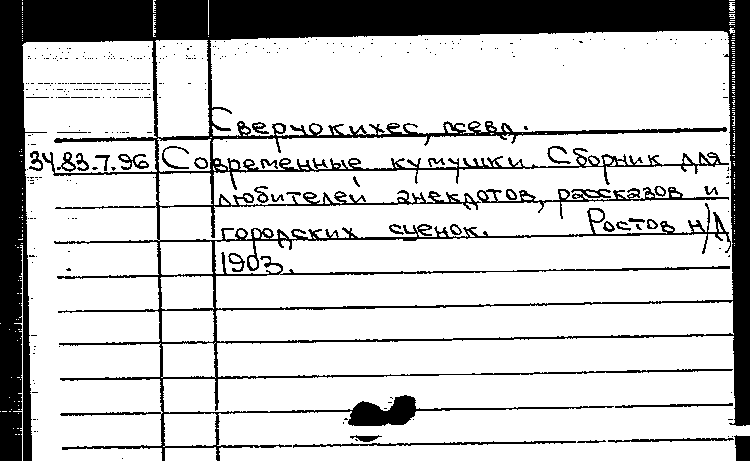 Сверчокихес, псевд.
34.83.7.96 Современные кумушки. Сборник для
любителей анекдотов, рассказов и
городских сценок. Ростов н/Д,
1903.